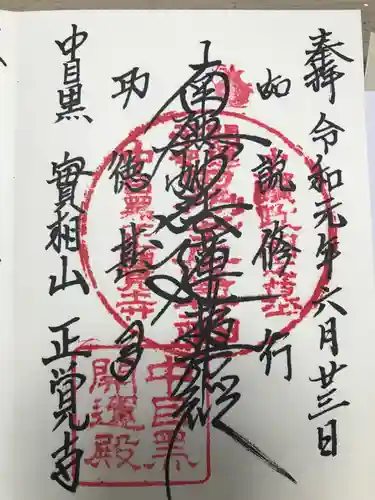 奉拝 令和元年六月廿三日
如説修行
南無妙法蓮華経
功徳甚多
中目黒 實相山 正覚寺
中目黒
開運殿